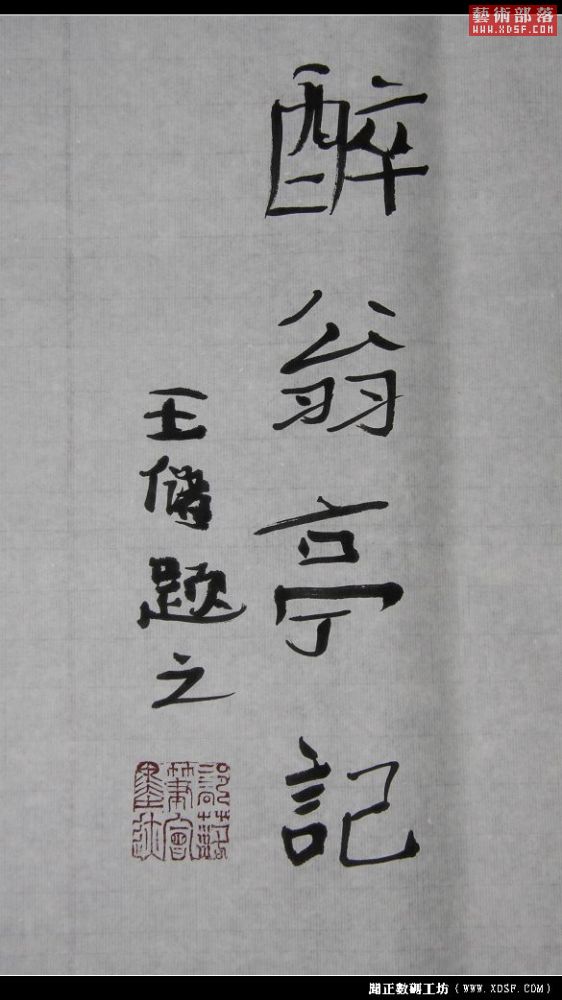 藝術部落
WWW.XDSF.COM
醉翁亭記
王偹題之
聞正數碼工坊（WWW.XDSF.COM）